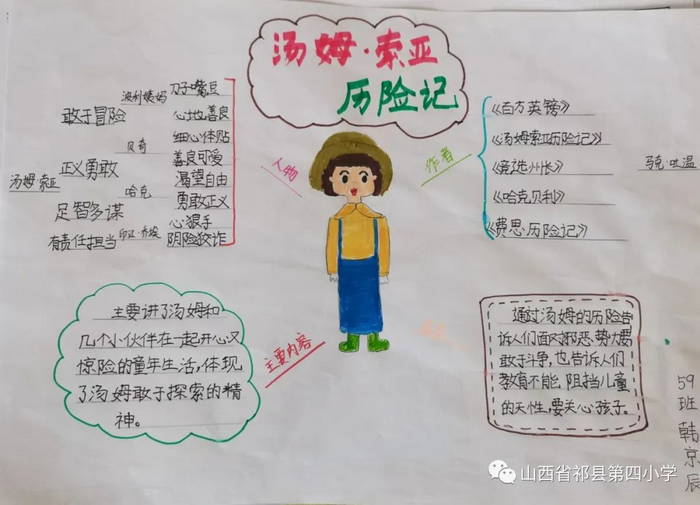 汤姆·索亚
历险记
人物
汤姆·索亚
敢于冒险
正义勇敢
足智多谋
有责任担当
波利姨妈
刀子嘴豆
心地善良
贝奇
细心体贴
善良可爱
哈克
渴望自由
勇敢正义
印江·乔埃
心狠手
阴险狡诈
作者
马克·吐温
《百万英镑》
《汤姆索亚历险记》
《竞选州长》
《哈克贝利》
《费恩历险记》
主要内容
主要讲了汤姆和
几个小伙伴在一起开心又
惊险的童年生活,体现
了汤姆敢于探索的精
神。
通过汤姆的历险告
诉人们面对邪恶势力要
敢于斗争,也告诉人们
教育不能阻挡儿童
的天性,要关心孩子。
59班韩京辰
山西省祁县第四小学